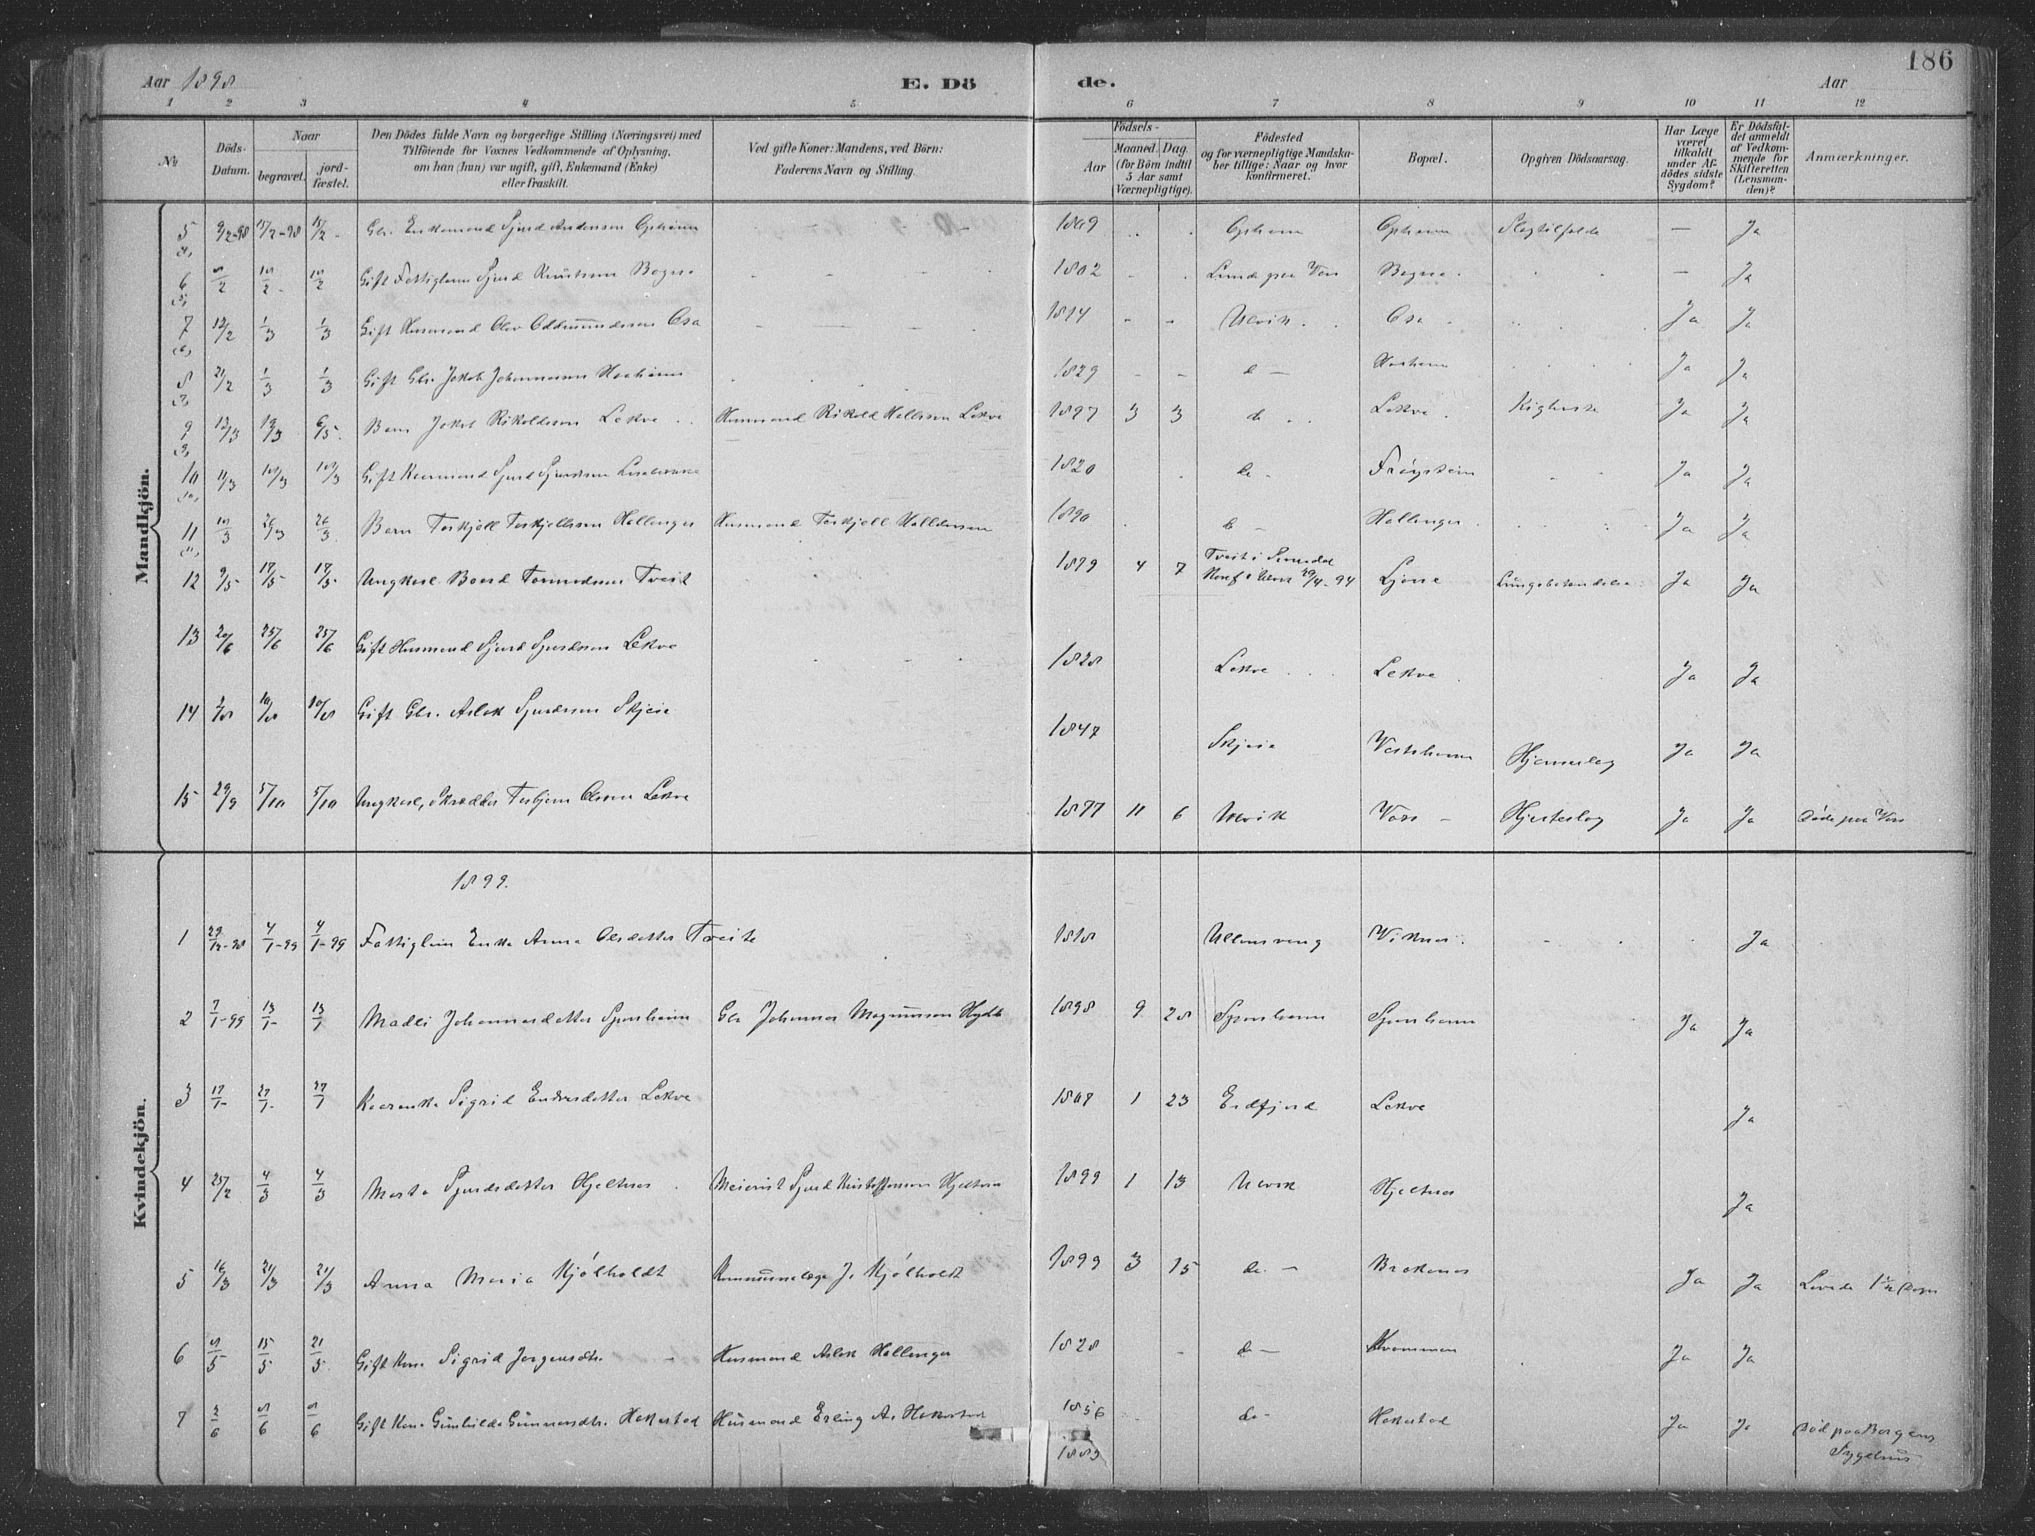 186
Aar 1898
E. Dö
de.
Aar
1 2 3 4 5 6 7 8 9 10 11 12
№
Döds-Datum.
Naar
begravet.
jord-fæstet.
Den Dödes fulde Navn og borgerlige Stilling (Næringsvei) med
Tilföiende for Voxnes Vedkommende af Oplysning,
om han (hun) var ugift, gift, Enkemand (Enke)
eller fraskilt.
Ved gifte Koner: Mandens, ved Börn:
Faderens Navn og Stilling.
Födsels-
Aar
Maaned. Dag.
(for Börn indtil
5 Aar samt
Værnepligtige).
Födested
og for værnepligtige Mandska-
ber tillige: Naar og hvor
konfirmeret.
Bopæl.
Opgiven Dödsaarsag.
Har Læge
været
tilkaldt
under Af-
dödes sidste
Sygdom?
Er Dödsfal-
det anmeldt
af Vedkom-
mende for
Skifteretten
(Lensman-
den)?
Anmærkninger.
Mandkjön.
5 9/2-98 15/2-98 15/2 Gbr. Enkemand Sjurd Andersen Opheim Opheim Opheim Slagtilfælde — Ja
6 Gift Fattiglem Sjurd Knutsen 1802 Lunde paa Voss — Ja
7 12/2 1/3 1/3 Gift Husmand Olav Oddmundsen Osa 1814 Ulvik Osa Ja Ja
8 21/2 1/3 1/3 Gift Gbr. Jakob Johannesen Haaheim 1829 do — Haaheim Ja Ja
9 12/3 19/3 6/5 Barn Jakob Rikoldsen Lekve Husmand Rikold Hallesen Lekve 1897 3 3 do Lekve Kighoste Ja Ja
10 11/3 18/3 18/3 Gift Kaarmand Sjurd Sjurdsen 1820 do Fröystein Ja Ja
11 18/3 26/3 26/3 Barn Torkjell Torkjellsen Hallanger Husmand Torkjell Haldorsen 1890 do — Hallanger Ja Ja
12 9/5 17/5 17/5 Ungkarl Baard Tormodsen Tveit 1879 4 7 Tveit i
Konf i Ulvik 29/4-94 Ljone Lungebetændelse Ja Ja
13 20/6 25/6 25/6 Gift Husmand Sjurd Sjurdsen Lekve 1828 Lekve Lekve Ja Ja
14 2/8 10/8 10/8 Gift Gbr. Aslak Sjurdsen Skjeie 1847 Skjeie Vestrheim Hjerneslag Ja Ja
15 29/9 5/10 5/10 Ungkarl, Skrædder Torbjørn Olsen Lekve 1877 11 6 Ulvik Voss — Hjerteslag Ja Ja Döde paa Voss
Kvindekjön.
1899.
1 29/12-98 4/1-99 4/1-99 Fattiglem Enke Anna Olsdatter Tveite 1818 Ullensvang Viknes Ja
2 7/1-99 13/1- 13/1 Madli Johannesdatter Sponheim Gbr Johannes Magnusson Hydle 1898 9 28 Sponheim Sponheim Ja Ja
3 17/1- 27/1- 27/1 Kaarenke Sigrid Endresdatter Lekve 1807 1 23 Eidfjord Lekve Ja
4 25/2 4/3 4/3 Marta Sjurdsdatter Hjeltnes Meierist Sjurd Kristoffersen Hjeltnes 1899 1 13 Ulvik Hjeltnes Ja
5 16/3 21/3 21/3 Anna Maria Kjölholdt Kommunelæge J. Kjölholdt 1899 3 15 do. — Brakenes Ja Ja Levede 1½ Dage
6 15/5 21/5 Gift Kone Sigrid Jørgensdtr. — Husmand Aslak Hallanger 1828 do — Kvammen Ja Ja
7 2/6 Gift Kone Gunhilda Gunnarsdtr. Hakestad Husmand Erling A. Hakestad 1856 do — Hakestad Ja Ja Död paa Bergens
Sygehus
1883